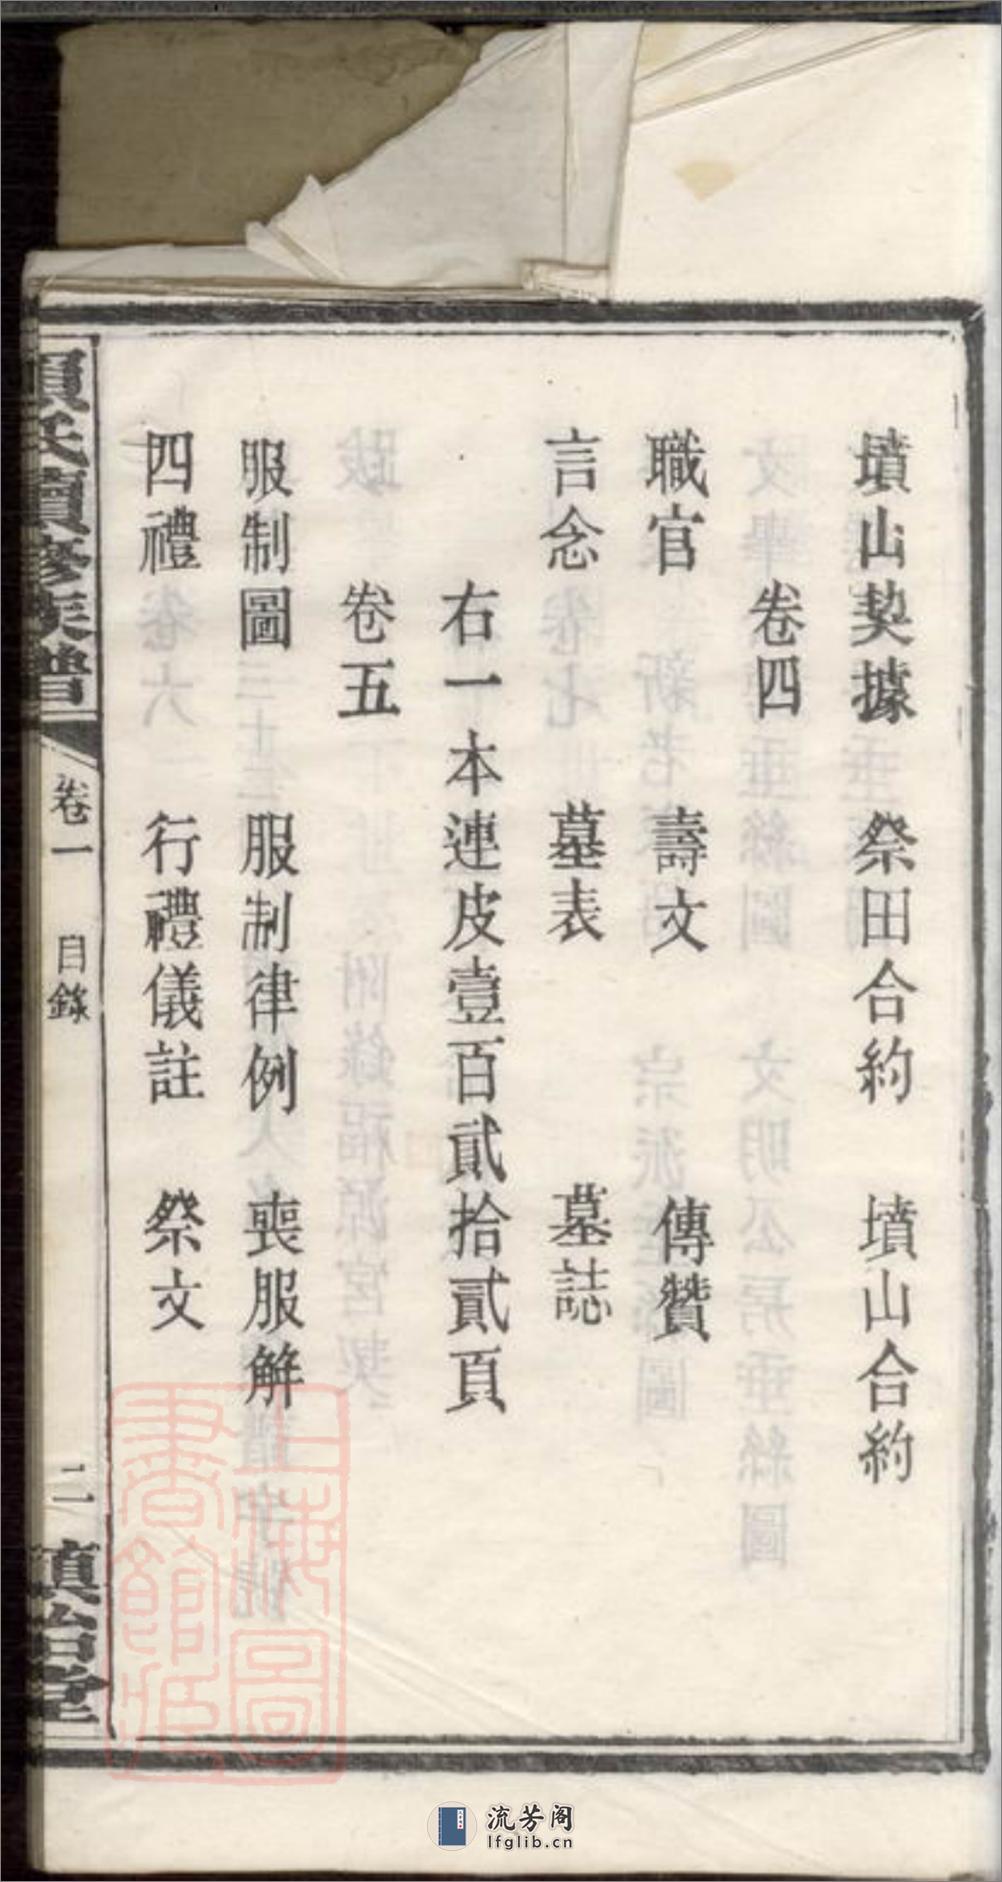 墳山契據　祭田合約　墳山合約
卷四
職官　壽文　傳贊
言念　墓表　墓誌
右一本連皮壹百貳拾貳頁
卷五
服制圖　服制律例　喪服解
四禮　行禮儀註　祭文
氏續修族譜
卷一　目錄
二
堂
上海圖書館藏
流芳阁
lfglib.cn